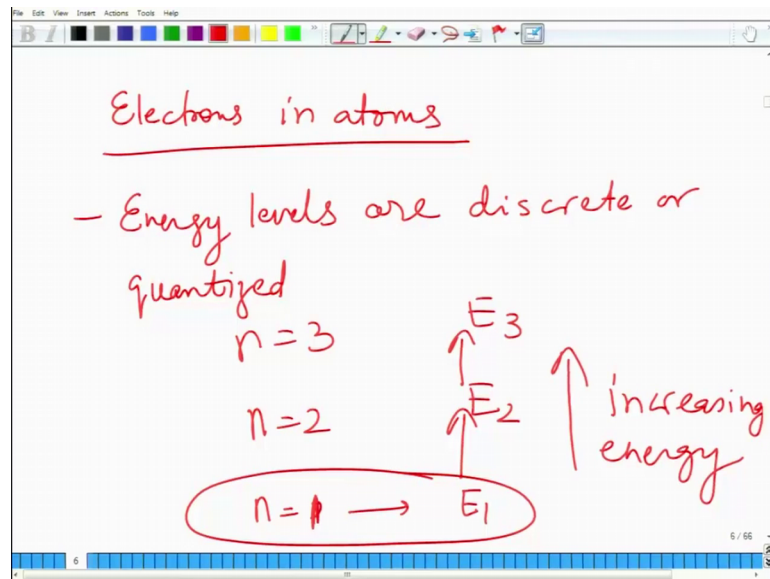 File Edit View Insert Actions Tools Help
B I
Electrons in atoms
- Energy levels are discrete or
quantized
n = 3 E3
n = 2 E2
n = 1 → E1
increasing
energy
6/66
6